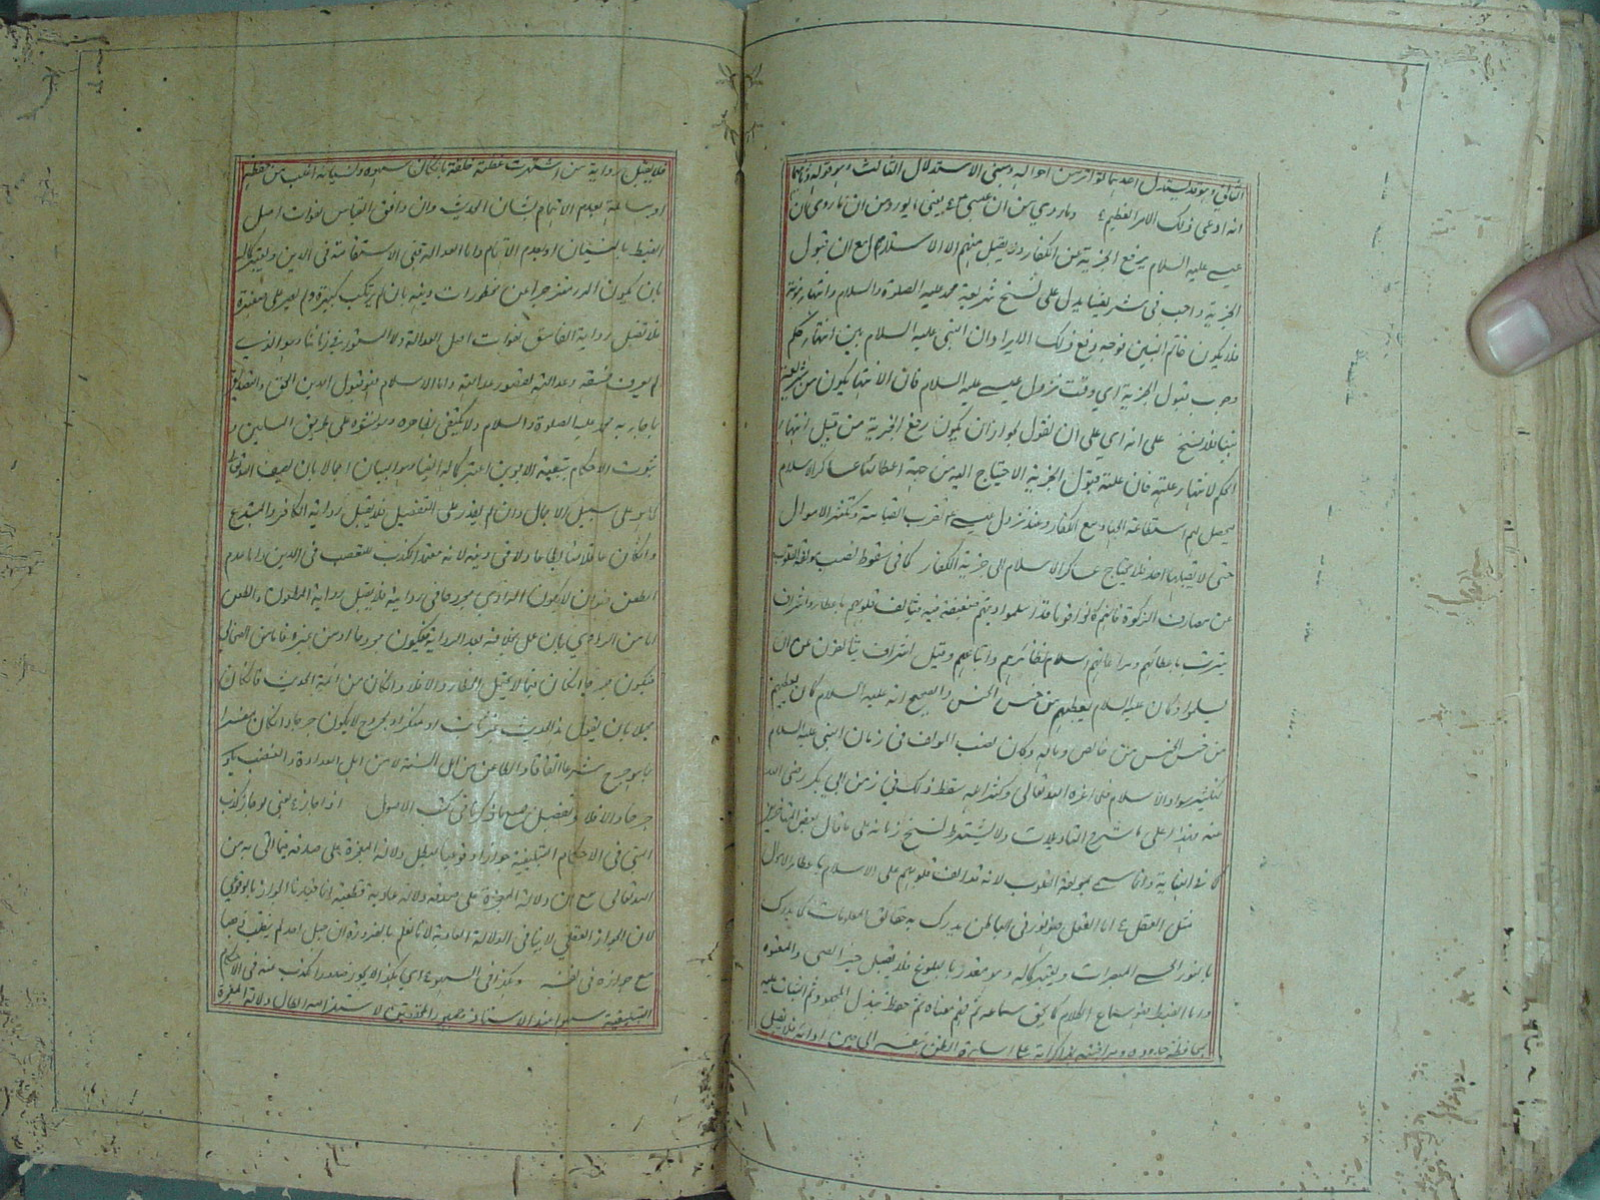 الثاني وهو قد يستدل احدهما تواتر من احواله ومبنى الاستدلال الثالث وهو قوله وثانيهما
انه ادعى ذلك الامر العظيم وما روي من ان عيسى يعنى ما يورد من ان ما روي بان
عيسى عليه السلام يرفع الجزية عن الكفار ولا يقبل منهم الا الاسلام مع ان قبول
الجزية واجب فى شريعتنا يدل على نسخ شريعة محمد عليه الصلوة والسلام وانتهاء نوبته
فلا يكون خاتم النبيين فوجه دفع ذلك الايراد ان النبي عليه السلام بين انتهاء حكم
وجوب قبول الجزية اي وقت نزول عيسى عليه السلام فان الانتهاء يكون من شريعة
نبينا فلا نسخ على انه اي على ان نقول يجوز ان يكون رفع الجزية من قبيل انتهاء
الحكم لانتهاء علته فان علة قبول الجزية الاحتياج اليه من جهة اعطائنا عساكر الاسلام
يحصل لهم استطاعة الجهاد مع الكفار وعند نزول عيسى تقرب القيامة وتكثر الاموال
حتى لا يقبلها احد فلا يحتاج عساكر الاسلام الى جزية الكفار كما فى سقوط نصيب مؤلفة القلوب
عن مصارف الزكوة فانهم كانوا قوما قد اسلموا ونيتهم ضعيفة فيه فيتألف قلوبهم باعطاء واشراف
يترتب باعطائهم ومراعاتهم اسلام نظائرهم واتباعهم وقيل اشراف يتألفون على ان
يسلموا وكان عليه السلام يعطيهم من خمس الخمس والصحيح انه عليه السلام كان يعطيهم
من خمس الخمس من خالص ماله وكان نصيب المؤلفة فى زمان النبي عليه السلام
لتكثير سواد الاسلام فلما اعزه الله تعالى وكثر اهله سقط ذلك في زمن ابي بكر رضي الله
عنه وهذا على ما شرح التأويلات ولا يشترط لنسخ زمانه على ما قال بعض المتأخرين
كما فى النهاية وانما سمي بمؤلفة القلوب لانه تؤلف قلوبهم على الاسلام باعطاء الاموال
مثل العقل اما العقل فهو نور فى الباطن يدرك به حقائق المعلومات كما يدرك
بالنور الحسي المبصرات ويعتبر كماله وهو مقدر بالبلوغ فلا تقبل خبر الصبي والمعتوه
واما الضبط فهو سماع الكلام كما يحق سماعه ثم فهم معناه ثم حفظه ببذل المجهود ثم الثبات عليه
بمحافظة حدوده ومراقبته بمذاكراته على اساءة الظن بنفسه الى حين ادائه فلا يقبل
فلا يقبل رواية من اشتدت غفلته خلقة بان كان سهوه ونسيانه اغلب من حفظه
او مساهلة بعدم الاهتمام بشان الحديث وان وافق القياس لفوات اصل
الضبط بالنسيان او بعدم الاهتمام واما العدالة فهي الاستقامة فى الدين ويعتبر كماله
بان يكون المرء منزجرا عن محظورات دينه بان لم يرتكب كبيرة ولم يصر على صغيرة
فلا تقبل رواية الفاسق لفوات اصل العدالة ولا المستور في زماننا وهو الذي
لم يعرف فسقه وعدالته لقصور عدالته واما الاسلام فهو قبول الدين الحق والتصديق
بما جاء به محمد عليه الصلوة والسلام ولا يكتفى بظاهره وهو نشوه على طريق المسلمين و
ثبوت الاحكام بتبعية الابوين اعتبر كماله ايضا وهو البيان اجمالا بان يصف الله تعالى
كما هو على سبيل الاجمال وان لم يقدر على التفصيل فلا يقبل رواية الكافر والمبتدع
وان كان عاقلا ضابطا عادلا فى دينه لانه متهم الكذب للتعصب فى الدين واما عدم
الطعن فهو ان لا يكون الراوي مجروحا فى رواية فلا يقبل رواية المطعون والطعن
اما من الراوي بان عمل بخلافه بعد الرواية فيكون مجروحا او من غيره فاما من الصحابي
فيكون جرحا ان كان فيما لا يحتمل الخفاء والا فلا وان كان من ائمة الحديث فان كان
مجملا بان يقول هذا الحديث غير ثابت او منكر او مجروح لا يكون جرحا وان كان مفسرا
بما هو جرح شرعا اتفاقا والطاعن من اهل النصيحة لا من اهل العداوة والتعصب يكون
جرحا والا فلا وتفصيل جميع ما ذكرنا فى كتب الاصول اذا جاز يعنى لو جاز كذب
النبي فى الاحكام التبليغية جوازا وقوعيا لبطل دلالة المعجزة على صدقه فيما اتى به من
الله تعالى مع ان دلالة المعجزة على صدقه دلالة عادية قطعية انما قيدنا الجواز بالوقوعي
لان الجواز العقلي لا ينافى الدلالة العادية لانا نعلم بالضرورة ان جبل احد لم ينقلب ذهبا
مع جوازه فى نفسه وهكذا فى السهو اي هكذا لا يجوز صدور الكذب منه فى الاحكام
التبليغية سهوا عند الاستاذ وجمهور المحققين لاستلزامه ابطال دلالة المعجزة